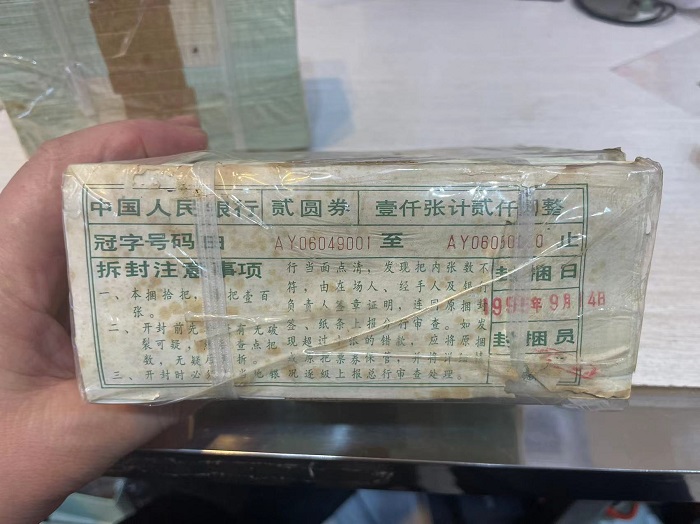 中国人民银行 贰圆券 壹仟张计贰仟圆整
冠字号码由 AY06049001 至 止
拆封注意事项
一、本捆拾把, 把壹百
张。
二、开封前无 有无破
裂可疑, 查点把
数,无疑 拆
三、开封时必 当地银
行当面点清,发现把内张数不
符,由在场人、经手人及银行
负责人签章证明,连同原捆封
签、纸条上报分行审查。如发
现超过 张的错款,应将原捆
原把票券保管,并将
况逐级上报总行审查处理。
封捆日
年9月14日
封捆员